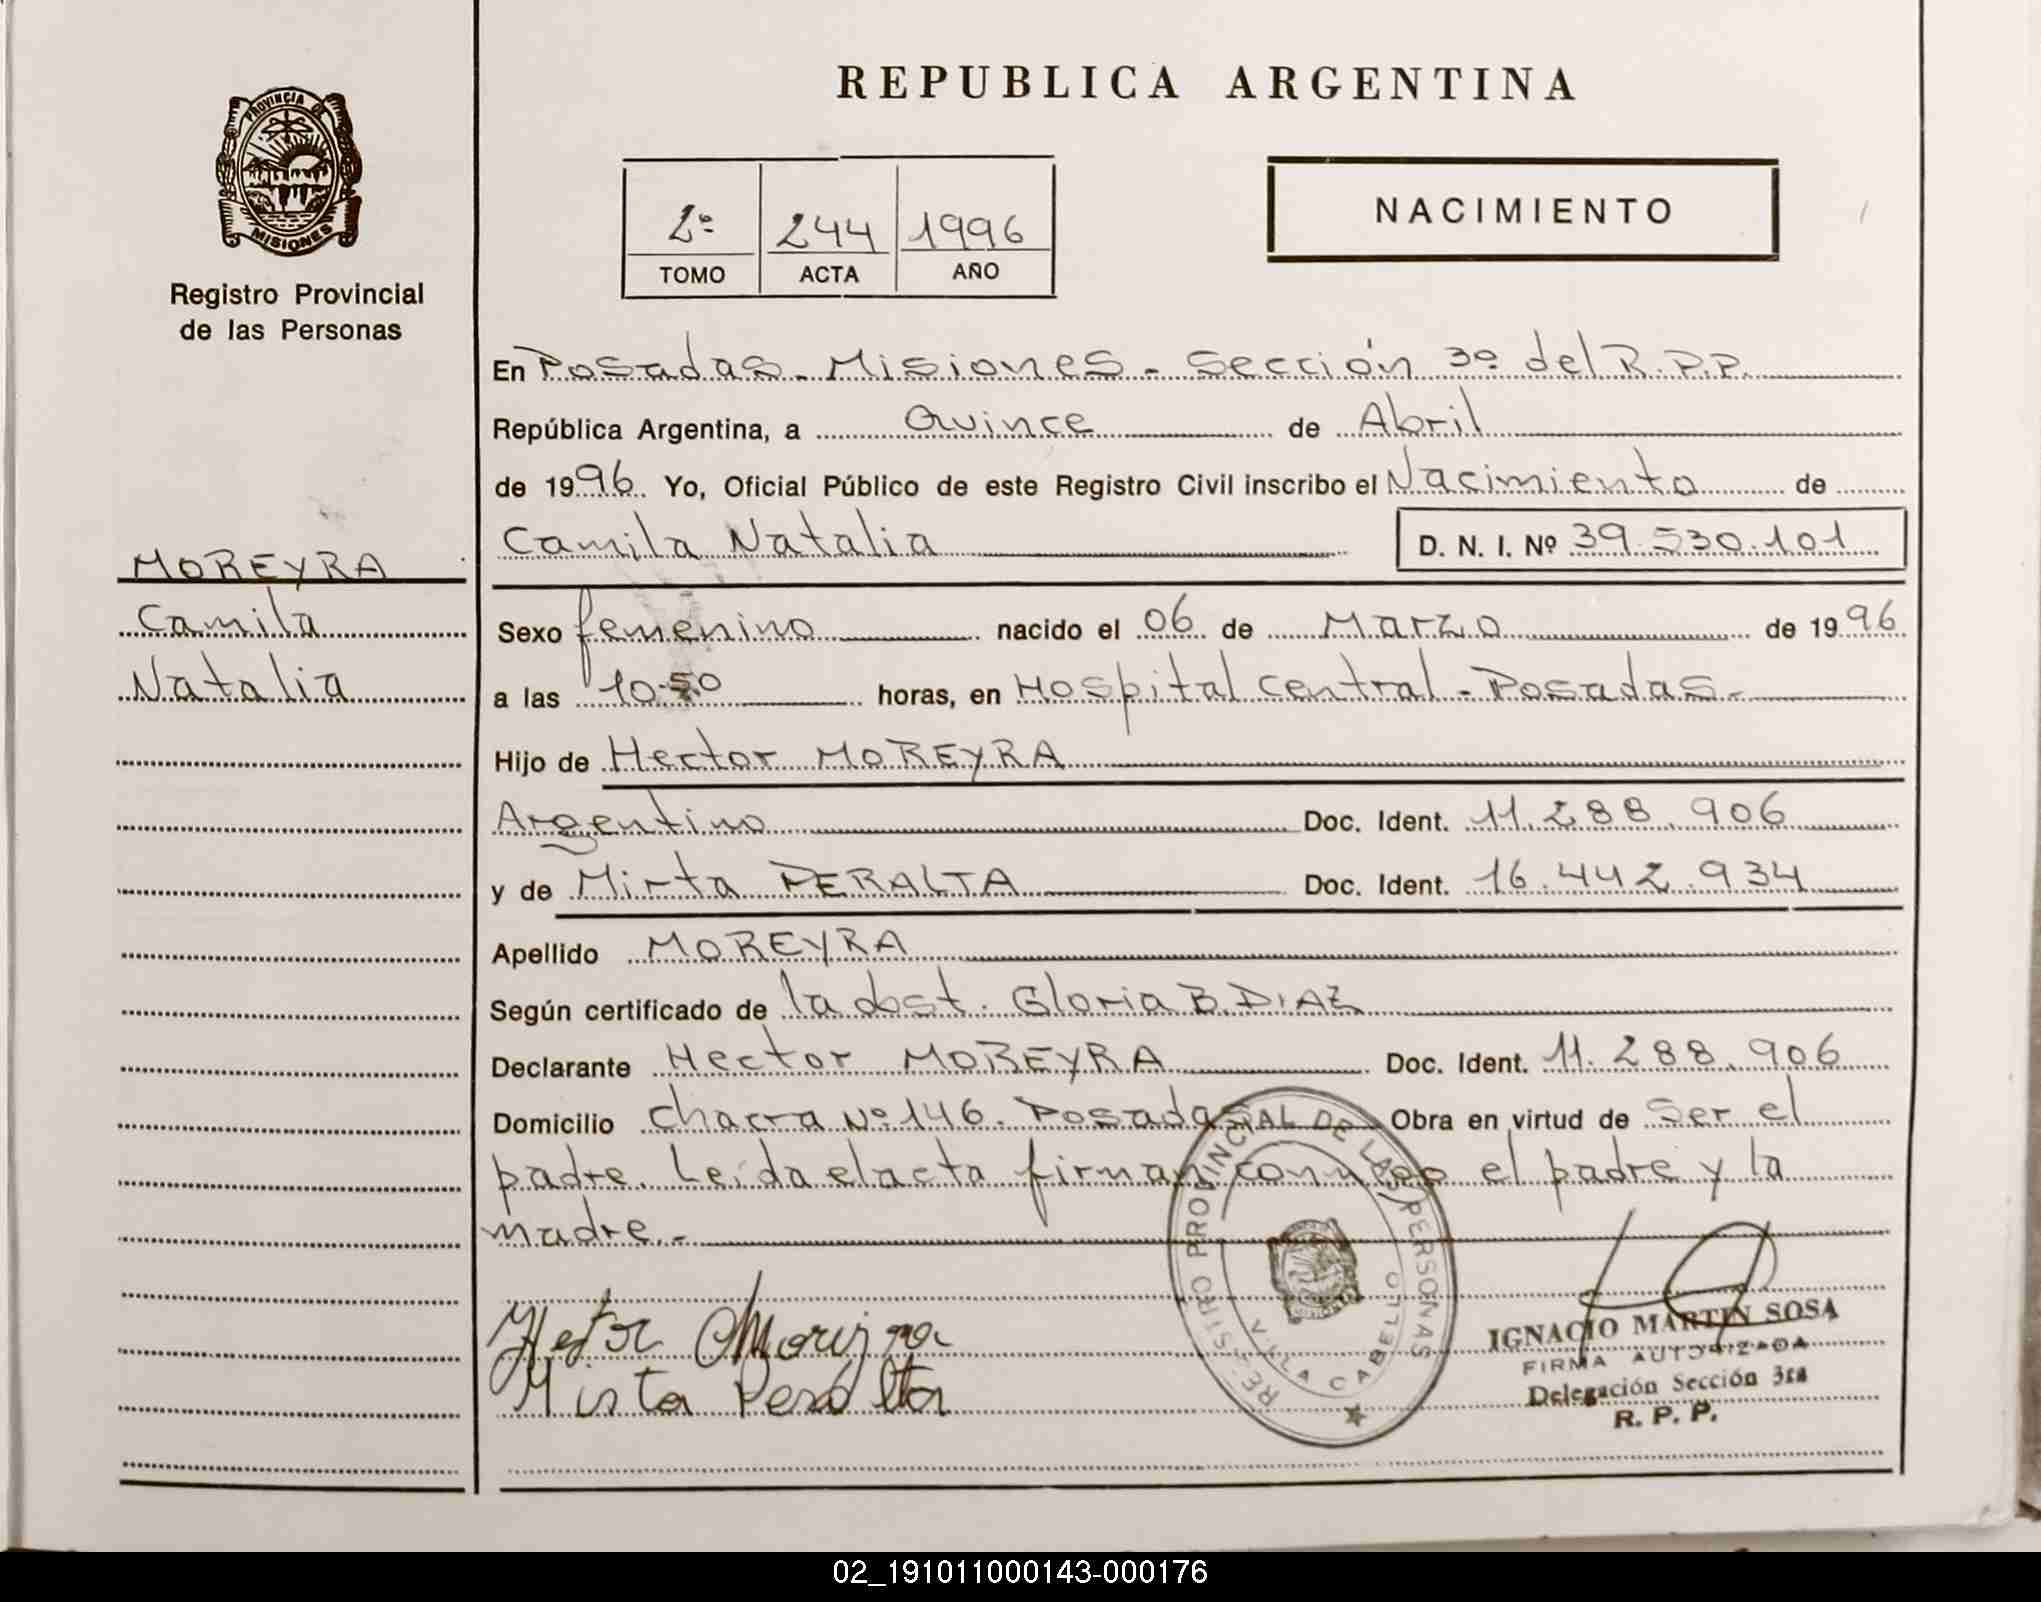 PROVINCIA DE
MISIONES
Registro Provincial
de las Personas
MOREYRA
Camila
Natalia
REPUBLICA ARGENTINA
2º 244 1996
TOMO ACTA AÑO
NACIMIENTO
En Posadas - Misiones - Sección 3º del R.P.P.
República Argentina, a Quince de Abril
de 1996. Yo, Oficial Público de este Registro Civil inscribo el Nacimiento de
Camila Natalia D. N. I. Nº 39.530.101
Sexo femenino nacido el 06 de Marzo de 1996
a las 10:50 horas, en Hospital Central - Posadas -
Hijo de Hector MOREYRA
Argentino Doc. Ident. 11.288.906
y de Mirta PERALTA Doc. Ident. 16.442.934
Apellido MOREYRA
Según certificado de la obst. Gloria B. DIAZ
Declarante Hector MOREYRA Doc. Ident. 11.288.906
Domicilio Chacra Nº 146. Posadas Obra en virtud de Ser el
padre. Leída el acta firman conmigo el padre y la
madre. -
REGISTRO PROVINCIAL DE LAS PERSONAS
VILLA CABELLO
Hector Moreyra
Mirta Peralta
IGNACIO MARTIN SOSA
FIRMA AUTORIZADA
Delegación Sección 3ra
R. P. P.
02_191011000143-000176